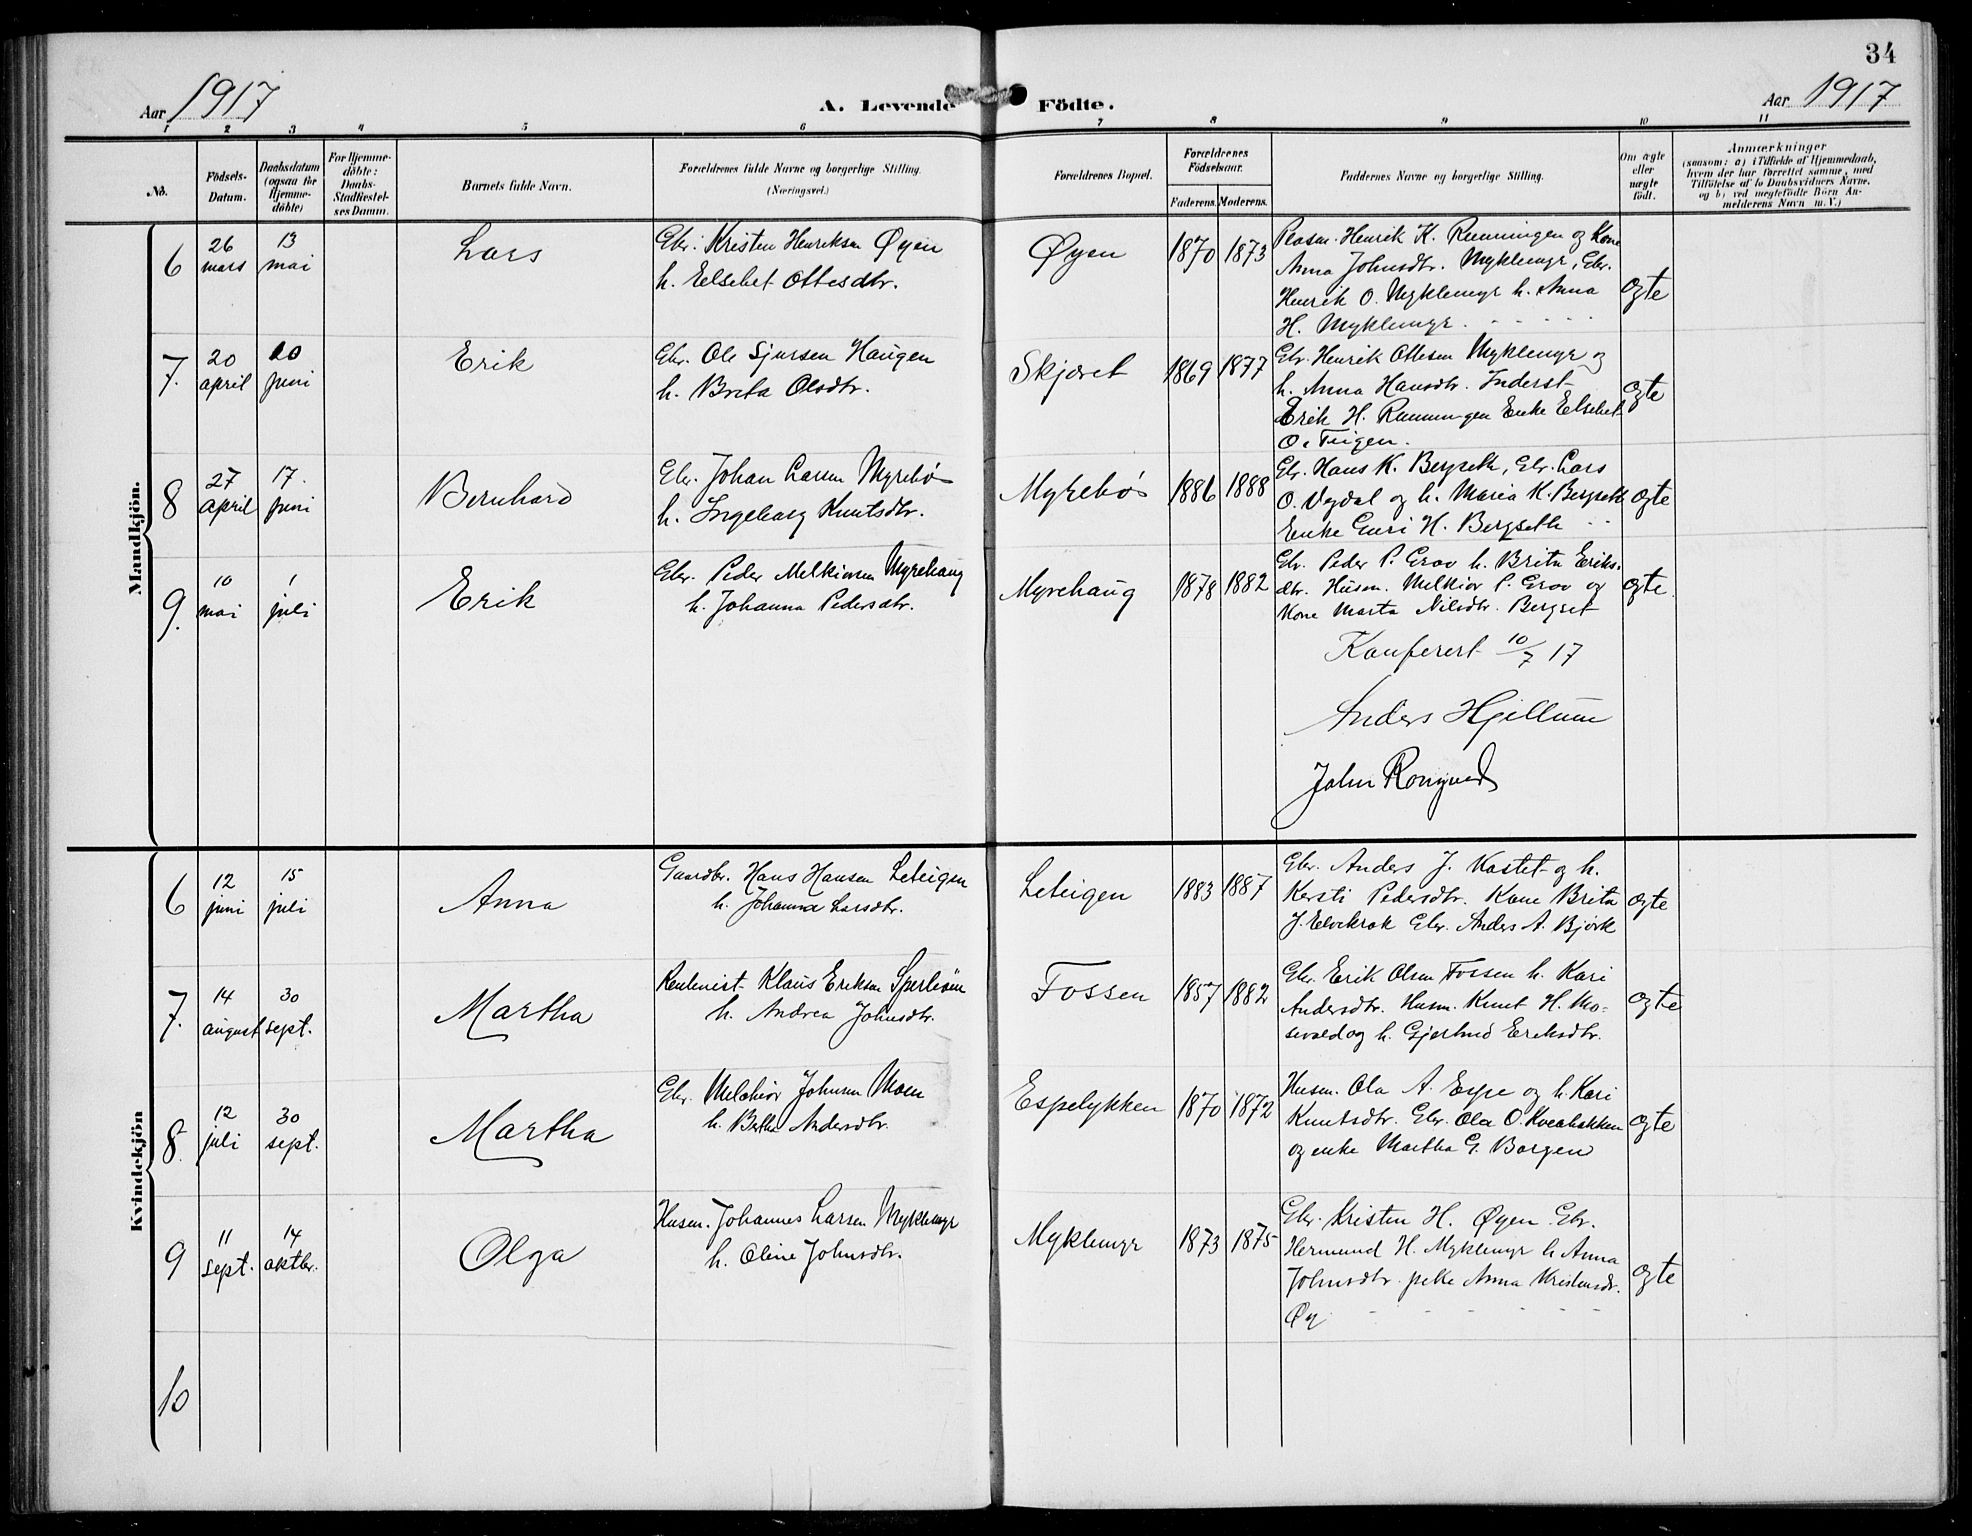 34
Aar 1917
A. Levende Födte.
Aar 1917
1 2 3 4 5 6 7 8 9 10 11
No.
Födsels-Datum.
Daabsdatum (ogsaa for Hjemme-döbte)
For Hjemme-döbte: Daabs-Stadfæstel-ses Datum.
Barnets fulde Navn.
Forældrenes fulde Navne og borgerlige Stilling.
(Næringsvei.)
Forældrenes Bopæl.
Forældrenes Födselsaar.
Faderens. Moderens.
Faddernes Navne og borgerlige Stilling.
Om ægte eller uægte født.
Anmærkninger
(saasom: a) i Tilfælde af Hjemmedaab,
hvem der har forrettet samme, med
Tilföielse af to Daabsvidners Navne,
og b) ved uægtefödte Börn An-
melderens Navn m. V.)
Mandkjön.
6
26 mars
13 mai
Lars
Gbr. Kristen Henriksen Øyen
h. Eelsebet Ottesdtr.
Øyen
1870 1873
Plasm. Henrik K. Runningen og Kone
Anna Johnsdtr. Myklemyr, Gbr.
Henrik O. Myklemyr h. Anna
H. Myklemyr.
Ægte
7.
20 april
10 juni
Erik
Gbr. Ole Sjursen Haugen
h. Brita Olsdtr.
Skjæret
1869 1877
Gbr. Henrik Ottesen Myklemyr og
h. Anna Hansdtr. Inderst
Erik H. Runningen Enke Elsebet
O. Teigen.
Ægte
8
27 april
17. juni
Bernhard
Gbr. Johan Larsen Myrebø
h. Ingeborg Knutsdtr.
Myrebø
1886 1888
Gbr. Hans K. Bergseth, Gbr. Lars
O. Vigdal og h. Maria K. Bergseth
Enke Guri H. Bergseth
Ægte
9.
10 mai
1 juli
Erik
Gbr. Peder Melkiorsen Myrehaug
h. Johanna Pedersdtr.
Myrehaug
1878 1882
Gbr. Peder P. Grov h. Brita Eriks-
dtr. Husm. Melkior P. Grov og
Kone Marta Nilsdtr. Bergset
Ægte.
Konferert 10/7 17
Anders Hjellum
John
Kvindekjön
6
12 juni
15 juli
Anna
Gaardbr. Hans Hansen Leteigen
h. Johanna Larsdtr.
Leteigen
1883 1887
Gbr. Anders J. Kastet og h.
Kersti Pedersdtr. Kone Brita
J. Elvekrok Gbr. Anders A. Bjørk
Ægte
7.
14 august
30 sept.
Martha
Rentenist Klaus Eriksen Sperleøen
h. Andrea Johnsdtr.
Fossen
1857 1882
Gbr. Erik Olsen Fossen h. Kari
Andersdtr. Husm. Knut H. Mo-
sevold og h. Gjertrud Eriksdtr.
Ægte
8.
12 juli
30 sept.
Martha
Gbr. Melchior Johnsen Moen
h. Bertha Andersdtr.
Espelykken
1870 1872
Husm. Ola A. Espe og h. Kari
Knutsdtr. Gbr. Ola O. Kveabakken
og enke Martha G. Borgen
Ægte
9
11 sept.
14 oktbr.
Olga
Husm. Johannes Larsen Myklemyr
h. Oline Johnsdtr.
Myklemyr
1873 1875
Gbr. Kristen H. Øyen Gbr.
Hermund H. Myklemyr h Anna
Johnsdtr. pike Anna Kristensdr.
Øy
Ægte
10